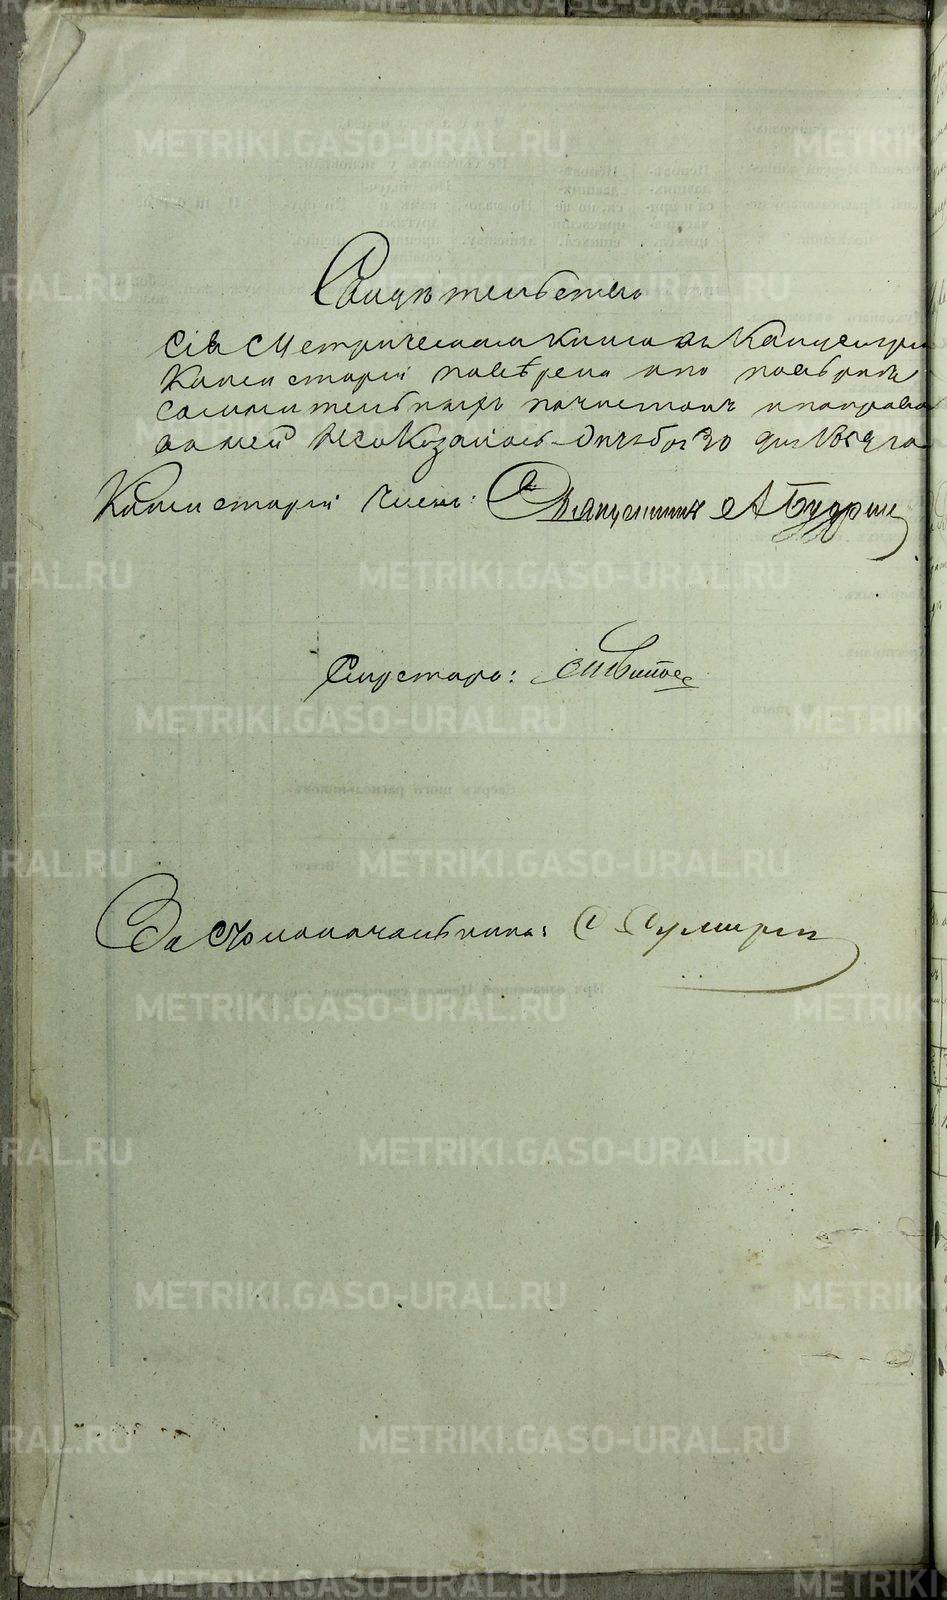 Свидѣтельство
Сія Метрическая книга въ Канцеляріи
Консисторіи повѣрена и по повѣркѣ
сомнительныхъ почистокъ и поправокъ
въ ней не оказалось. Октября 30 дня
Консисторіи Членъ: Священникъ А Будрин
Секретарь:
За Столоначальника:
METRIKI.GASO-URAL.RU